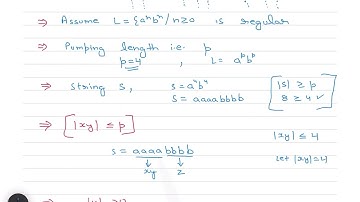 ⇒ Assume L = {aⁿbⁿ / n≥0 is regular
⇒ Pumping length i.e. p
p=4 , L = aᵖbᵖ
⇒ String S, S = a⁴b⁴ |S| ≥ p
S = aaaabbbb 8 ≥ 4 ✓
⇒ |xy| ≤ p
S = aaaabbbb |xy| ≤ 4
xy z let |xy|=4